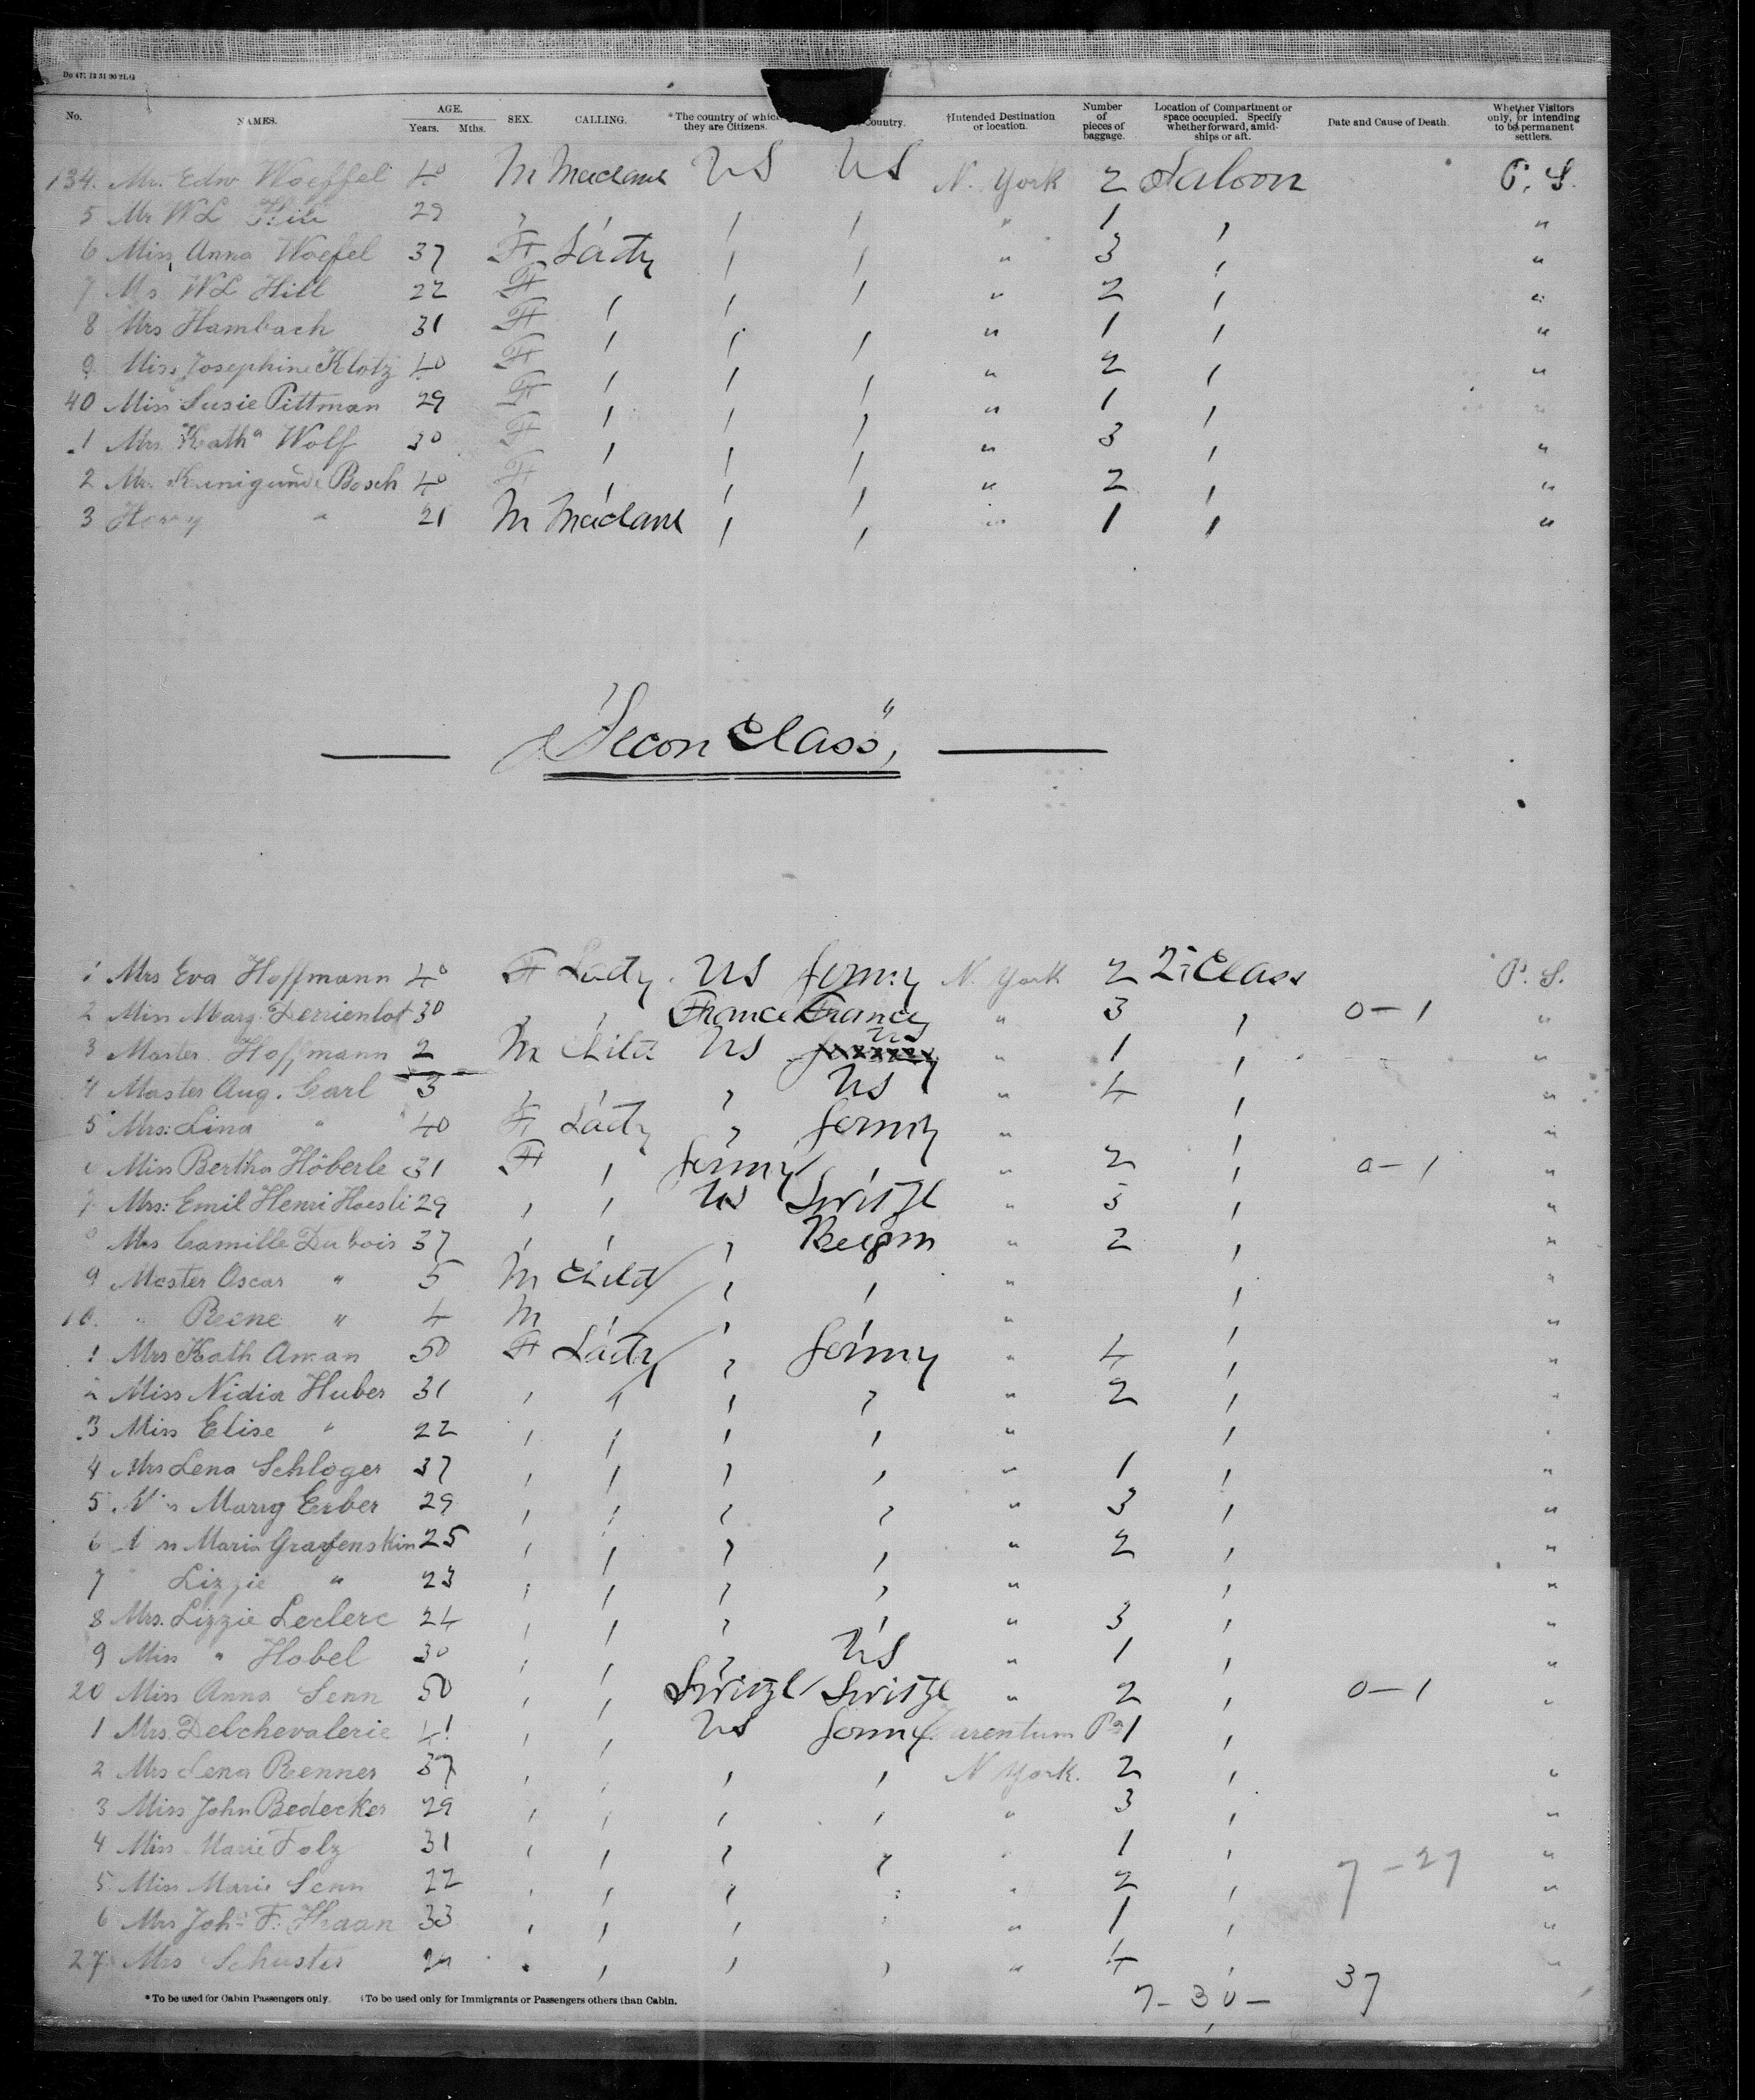 No. NAMES. AGE. Years. Mths. SEX. CALLING. *The country of which they are Citizens. Country. †Intended Destination or location. Number of pieces of baggage. Location of Compartment or space occupied. Specify whether forward, amid-ships or aft. Date and Cause of Death. Whether Visitors only, or intending to be permanent settlers.
134. Mr. Edw Woeffel 40 M US US N. York 2 Saloon P. S.
5 Mr W L 29 " 1 "
6 Miss Anna Woefel 37 F Lady " 3 "
7 W L Hill 22 F " 2 "
8 Mrs Hambach 31 F " 1 "
9 Miss Josephine Klotz 40 F " 2 "
40 Miss Susie Pittman 29 F " 1 "
1 Mrs Katha Wolf 30 F " 3 "
2 Kunigunde Bosch 40 F " 2 "
3 Harry " 21 M " 1 "
"Secon Class"
1 Mrs Eva Hoffmann 40 F Lady US Germy N. York 2 2 Class P. S.
2 Miss Marg. Derrienlot 30 France France " 3 0-1 "
3 Master Hoffmann 2 M Child US US " 1 "
4 Master Aug. Carl 3 US " 4 "
5 Mrs: Lina " 40 F Lady Germy " "
Miss Bertha Höberle 31 F Germy " 2 0-1 "
7 Mrs: Emil Henri Hoesli 29 US Switzl " 5 "
Mrs Camille Dubois 37 Belgm " 2 "
9 Master Oscar " 5 M Child " "
10. " Reene " 4 M " "
1 Mrs Kath Aman 50 F Lady Germy " 4 "
2 Miss Nidia Huber 31 " 2 "
3 Miss Elise " 22 "
4 Mrs Lena Schloger 37 " 1 "
5 Marg Erber 29 " 3 "
6 Maria Grafenskin 25 " 2 "
7 Lizzie " 23 " "
8 Mrs. Lizzie Leclerc 24 " 3 "
9 Miss " Hobel 30 US " 1 "
20 Miss Anna Senn 50 Switzl Switzl " 2 0-1 "
1 Mrs. Delchevalerie 41 US Germy Tarentum Pa 1
2 Mrs Lena Renner 37 N York. 2 "
3 Miss John Bedecker 29 " 3 "
4 Miss Marie Folz 31 " 1 "
5 Miss Marie Senn 22 " 2 7-27 "
6 Mrs Joh. F. Haan 33 " 1 "
27 Mrs Schuster " 4 "
*To be used for Cabin Passengers only. †To be used only for Immigrants or Passengers others than Cabin. 7-30- 37